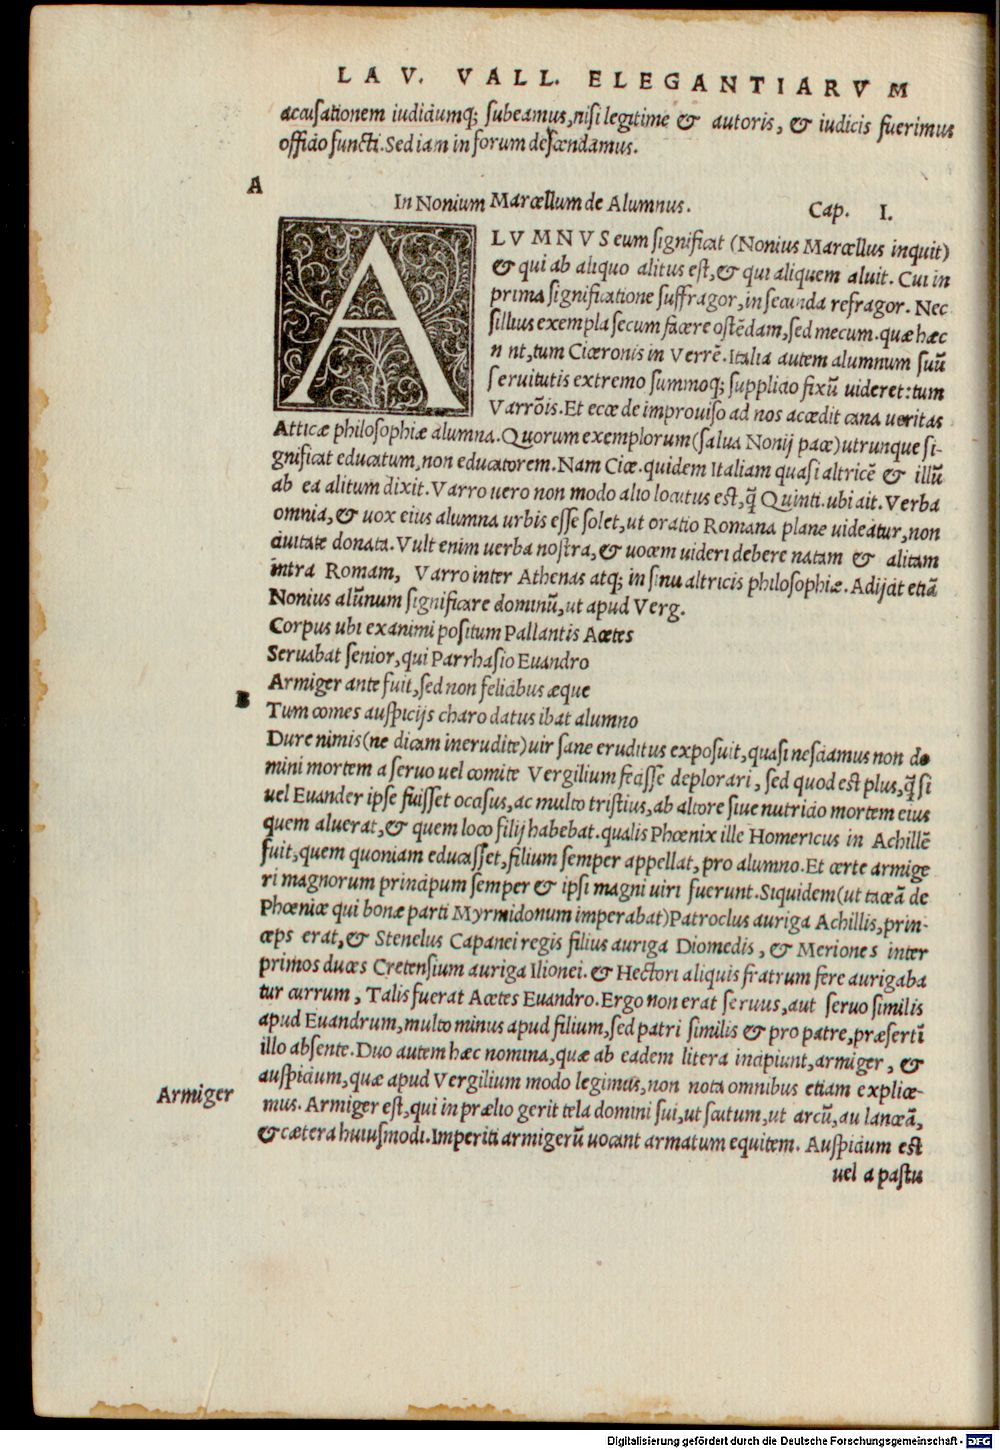 LAV. VALL. ELEGANTIARVM
accusationem iudiciumq; subeamus, nisi legitime & autoris, & iudicis fuerimus
officio functi. Sed iam in forum descendamus.
A
In Nonium Marcellum de Alumnus. Cap. I.
ALVMNVS eum significat (Nonius Marcellus inquit)
& qui ab aliquo alitus est, & qui aliquem aluit. Cui in
prima significatione suffragor, in secunda refragor. Nec
illius exempla secum facere ostēdam, sed mecum. quæ hæc
nt, tum Ciceronis in Verrē. Italia autem alumnum suū
seruitutis extremo summoq; supplicio fixū uideret: tum
Varrōis. Et ecce de improuiso ad nos accedit cana ueritas
Atticæ philosophiæ alumna. Quorum exemplorum (salua Nonij pace) utrunque si-
gnificat educatum, non educatorem. Nam Cice. quidem Italiam quasi altricē & illū
ab ea alitum dixit. Varro uero non modo alio locutus est, q̄ Quinti. ubi ait. Verba
omnia, & uox eius alumna urbis esse solet, ut oratio Romana plane uideatur, non
ciuitate donata. Vult enim uerba nostra, & uocem uideri debere natam & alitam
intra Romam, Varro inter Athenas atq; in sinu altricis philosophiæ. Adijcit etiā
Nonius alūnum significare dominū, ut apud Verg.
Corpus ubi exanimi positum Pallantis Acetes
Seruabat senior, qui Parrhasio Euandro
Armiger ante fuit, sed non felicibus æque
B
Tum comes auspicijs charo datus ibat alumno
Dure nimis (ne dicam inerudite) uir sane eruditus exposuit, quasi nesciamus non do
mini mortem a seruo uel comite Vergilium fecisse deplorari, sed quod est plus, q̄ si
uel Euander ipse fuisset occisus, ac multo tristius, ab altore siue nutricio mortem eius
quem aluerat, & quem loco filij habebat. qualis Phœnix ille Homericus in Achillē
fuit, quem quoniam educasset, filium semper appellat, pro alumno. Et certe armige
ri magnorum principum semper & ipsi magni uiri fuerunt. Siquidem (ut taceā de
Phœnice qui bonæ parti Myrmidonum imperabat) Patroclus auriga Achillis, prin-
ceps erat, & Stenelus Capanei regis filius auriga Diomedis, & Meriones inter
primos duces Cretensium auriga Ilionei. & Hectori aliquis fratrum fere aurigaba
tur currum, Talis fuerat Acetes Euandro. Ergo non erat seruus, aut seruo similis
apud Euandrum, multo minus apud filium, sed patri similis & pro patre, præserti̅
illo absente. Duo autem hæc nomina, quæ ab eadem litera incipiunt, armiger, &
auspicium, quæ apud Vergilium modo legimus, non nota omnibus etiam explice-
Armiger
mus. Armiger est, qui in prælio gerit tela domini sui, ut scutum, ut arcū, au lanceā,
& cætera huiusmodi. Imperiti armigerū uocant armatum equitem. Auspicium est
uel a pastu
Digitalisierung gefördert durch die Deutsche Forschungsgemeinschaft - DFG